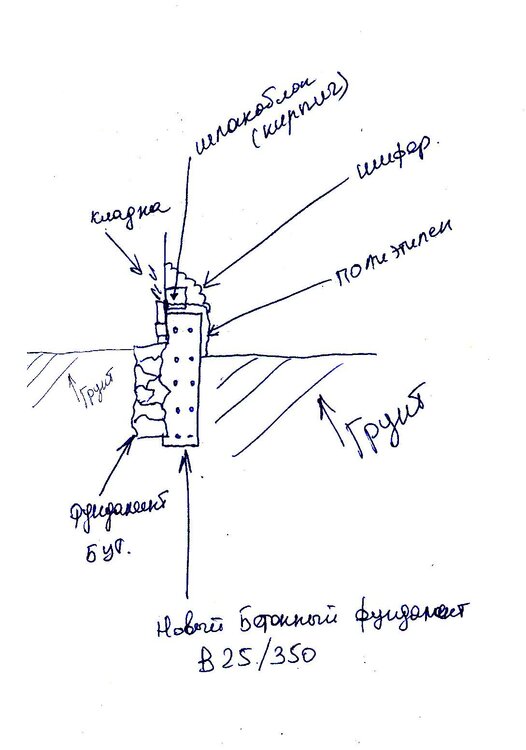 шлакоблок
(кирпич)
шифер.
кладка
полиэтилен
Грунт
Грунт
Фундамент
БУТ.
Новый Бетонный фундамент
В 25/350